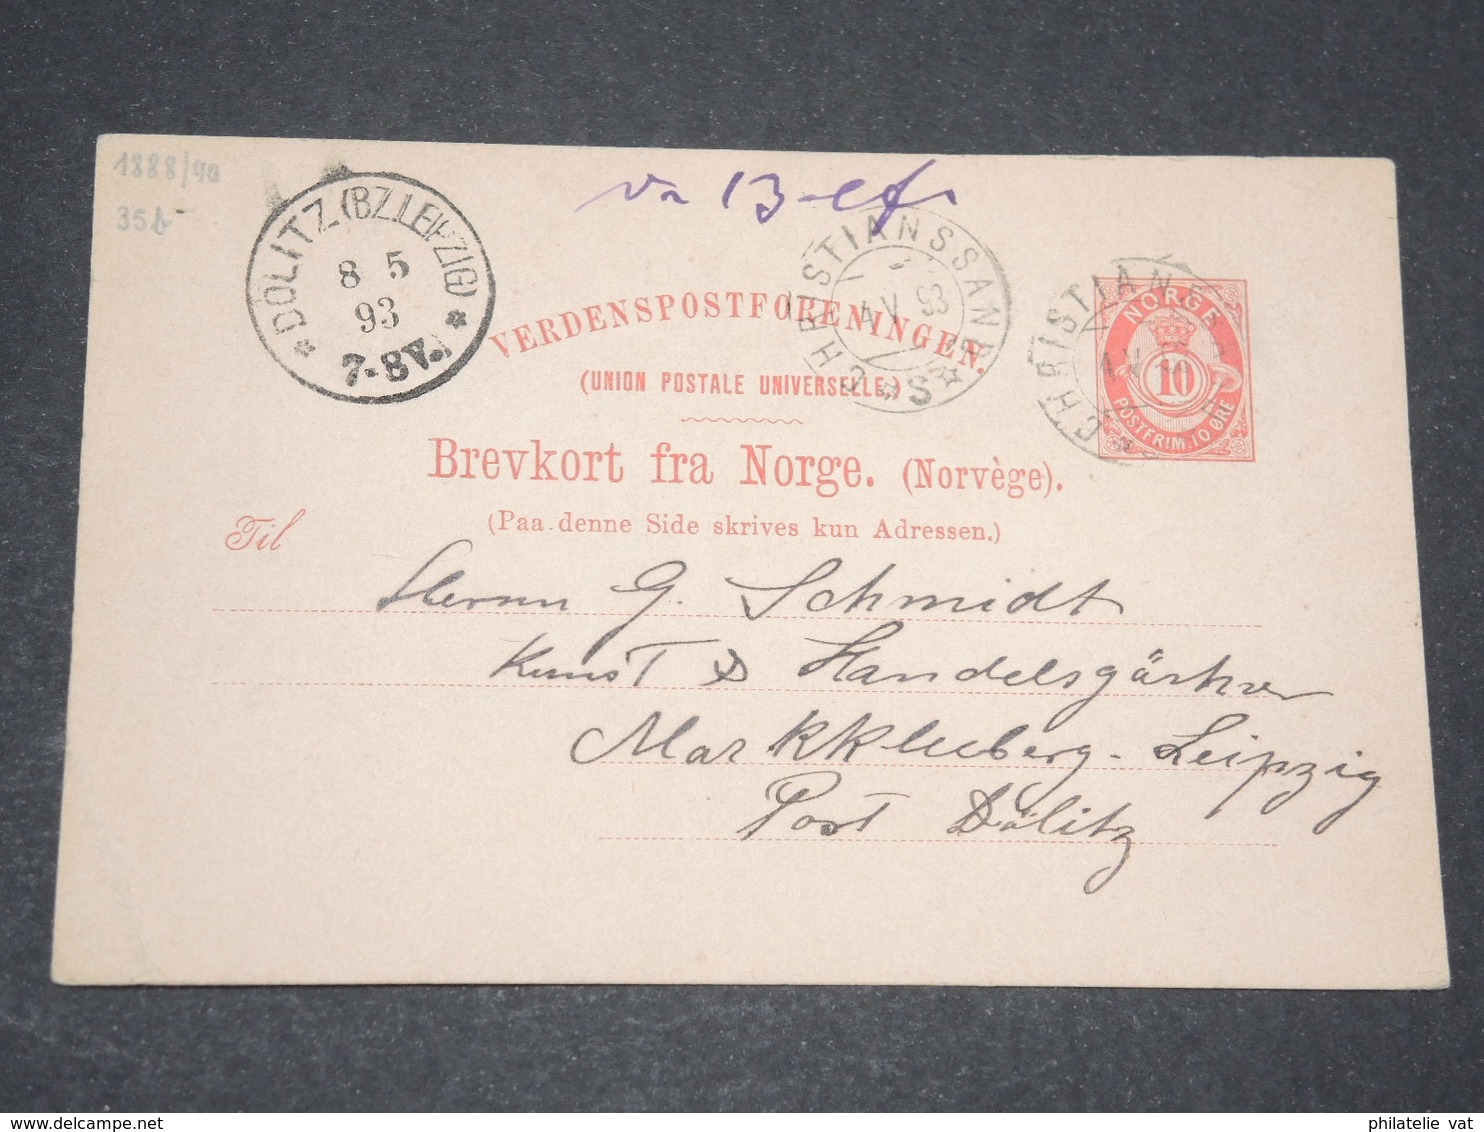 1888/90
35b
DÖLITZ (BZ. LEIPZIG)
8 5
93
7-8V.
CHRISTIANSSAND S
4 V 93
VERDENSPOSTFORENINGEN.
(UNION POSTALE UNIVERSELLE.)
NORGE
10
POSTFRIM. 10 ØRE
Brevkort fra Norge. (Norvège).
(Paa denne Side skrives kun Adressen.)
Til
Herrn G. Schmidt
Kunst & Handelsgärtner
Markkleeberg - Leipzig
Post Dölitz
delcampe.net
philatelie vat